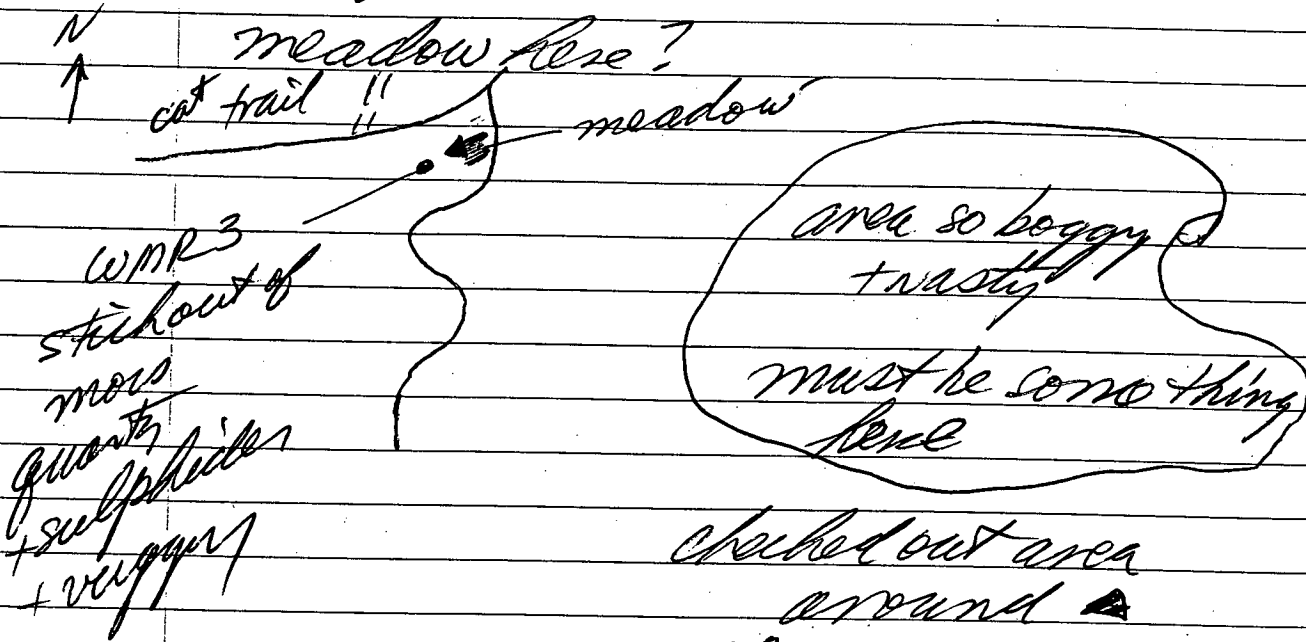 N
meadow here?
cat trail !!
meadow
WMR3
stickout of
moss
quartz
+ sulphides
+ vuggy
area so boggy
+ nasty
must be something
here
checked out area
around